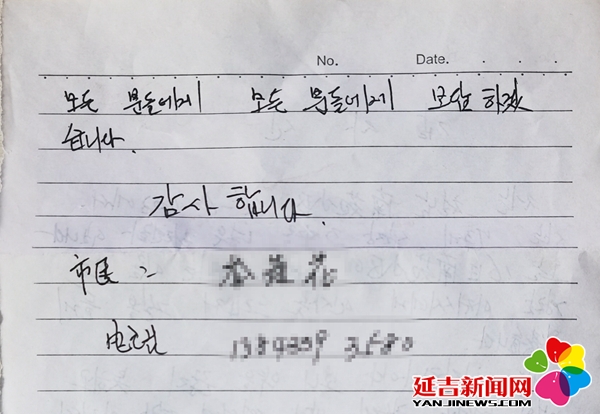 No. Date.
모든 분들에게 모든 분들에게 보답하겠
습니다.
감사합니다.
市民:
电话
延吉新闻网
YANJINEWS.COM